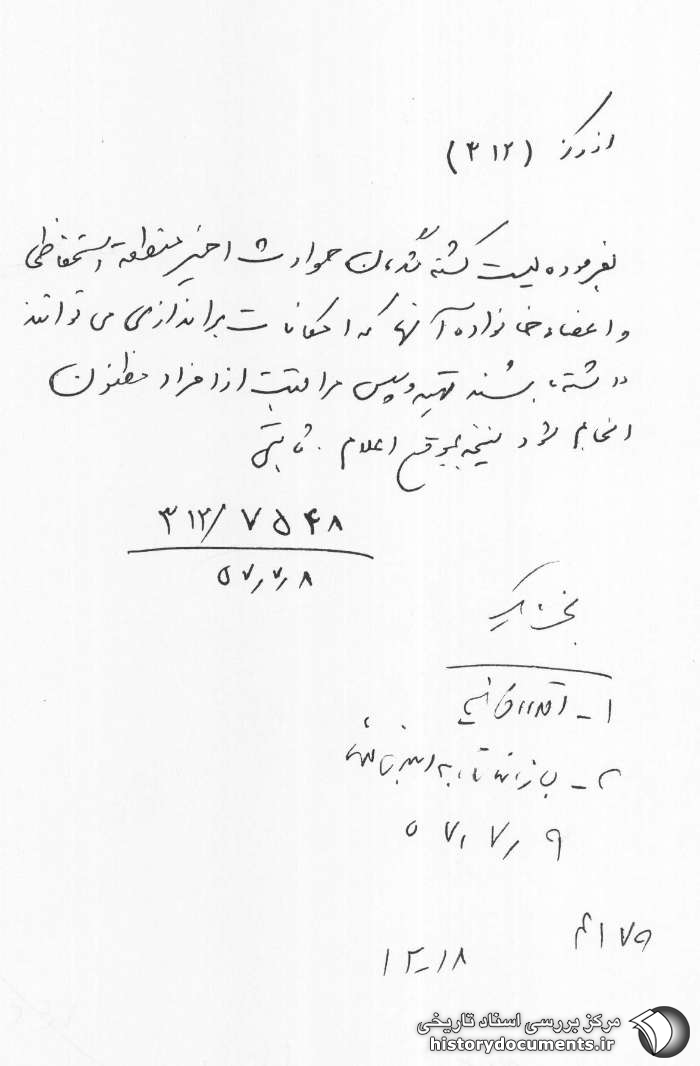 از مرکز (۳۱۲)
بفرموده لیست کشته شدگان حوادث اخیر منطقه استحفاظی
و اعضاء خانواده آنها که امکانات براندازی می توانند
داشته باشند تهیه و سپس مراقبت از افراد مظنون
انجام شود نتیجه بموقع اعلام . ثابتی
۳۱۲/۷۵۴۸
۵۷٫۷٫۸
بخش یک
۱ - اقدام
۲ -
۵۷٫۷٫۹
۱۲-۱۸
مرکز بررسی اسناد تاریخی
historydocuments.ir